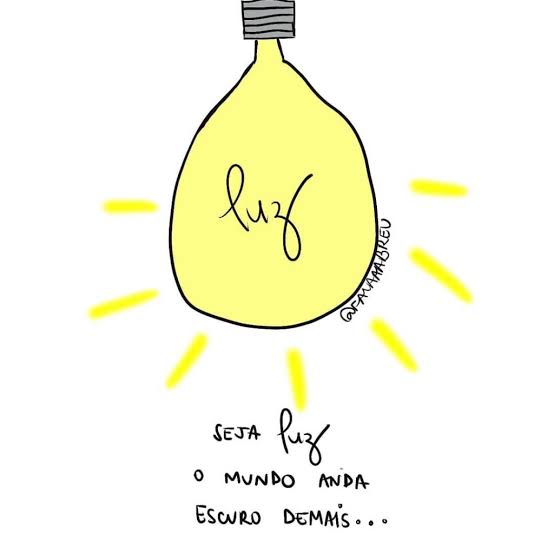 luz
@FALAAABREU
SEJA luz
O MUNDO ANDA
ESCURO DEMAIS...